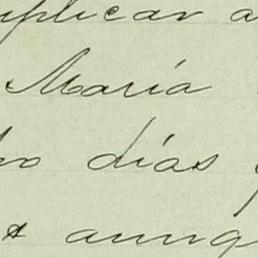 plicar a
Maria
o días
aunq